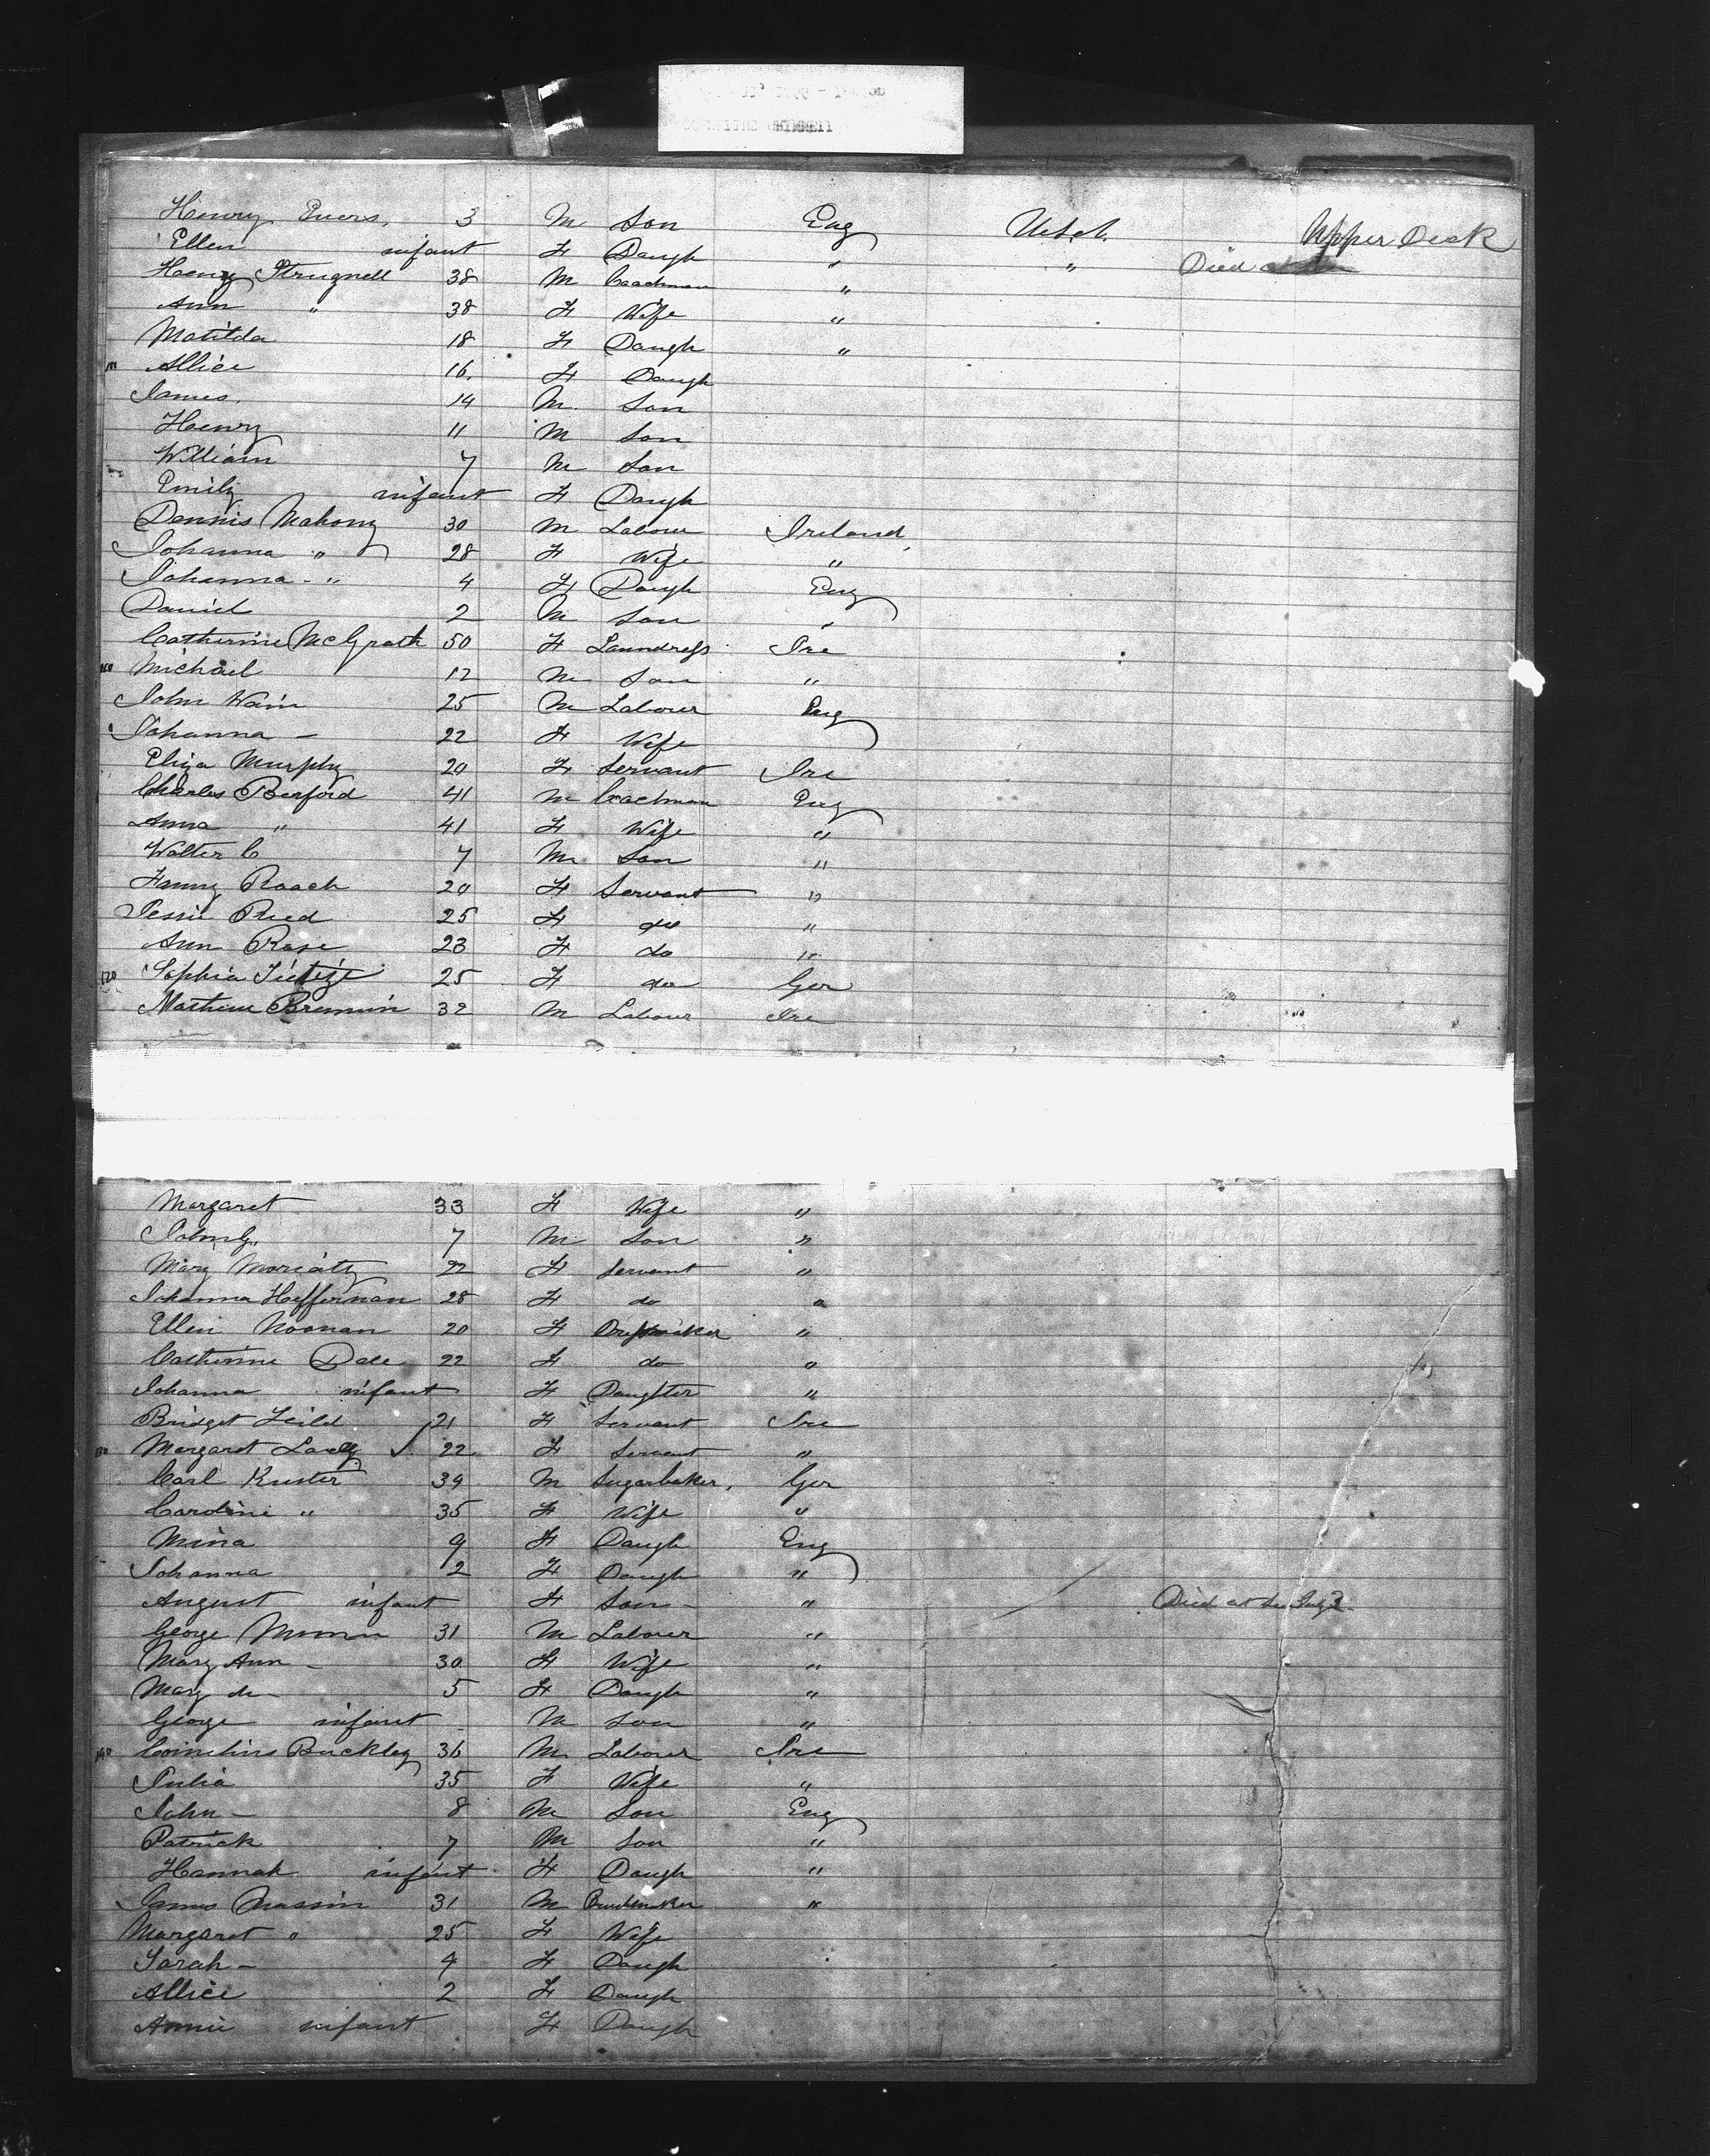 Henry Evers, 3 M Son Eng U.S.A. Upper Deck
Ellen infant F Daugh " " Died at
Henry Strugnell 38 M Coachman "
Ann " 38 F Wife "
Matilda 18 F Daugh "
Allice 16. F Daugh
James. 14 M. Son
Henry 11 M Son
William 7 M Son
Emily infant F Daugh
Dennis Mahony 30 M Labour Ireland,
Johanna " 28 F Wife "
Johanna - " 4 F Daugh Eng
Daniel 2 M Son "
Catherine McGrath 50 F Laundress Ire
Michael 12 M Son "
John Wain 25 M Labourer Eng
Johanna - 22 F Wife
Eliza Murphy 20 F Servant Ire
Charles Burford 41 M Coachman Eng
Anna " 41 F Wife "
Walter C 7 M Son "
Fanny Roach 20 F Servant "
Jessie Reed 25 F do "
Ann Rose 23 F do "
120 Sophia 25 F do Ger
Mathew 32 M Labour Ire
Margaret 33 F Wife "
John G. 7 M Son "
Mary Moriaty 22 F Servant "
Johanna Heffernan 28 F do "
Ellen Noonan 20 F Dressmaker "
Catherine Dale 22 F do "
Johanna infant F Daughter "
Bridget 21 F Servant Ire
130 Margaret 22 F Servant "
Carl Kuster 39 M Sugarbaker, Ger
Caroline " 35 F Wife "
Mina 9 F Daugh Eng
Johanna 2 F Daugh "
August infant F Son - " Died at Sea July 2
George 31 M Laborer "
Mary Ann - 30 F Wife "
Mary do - 5 F Daugh "
George infant M Son "
140 Cornelius Buckley 36 M Laborer Ire
Julia 35 F Wife "
John - 8 M Son Eng
Patrick 7 M Son "
Hannah infant F Daugh "
James Massin 31 M "
Margaret " 25 F Wife
Sarah - 4 F Daugh
Allice 2 F Daugh
Annie infant F Daugh